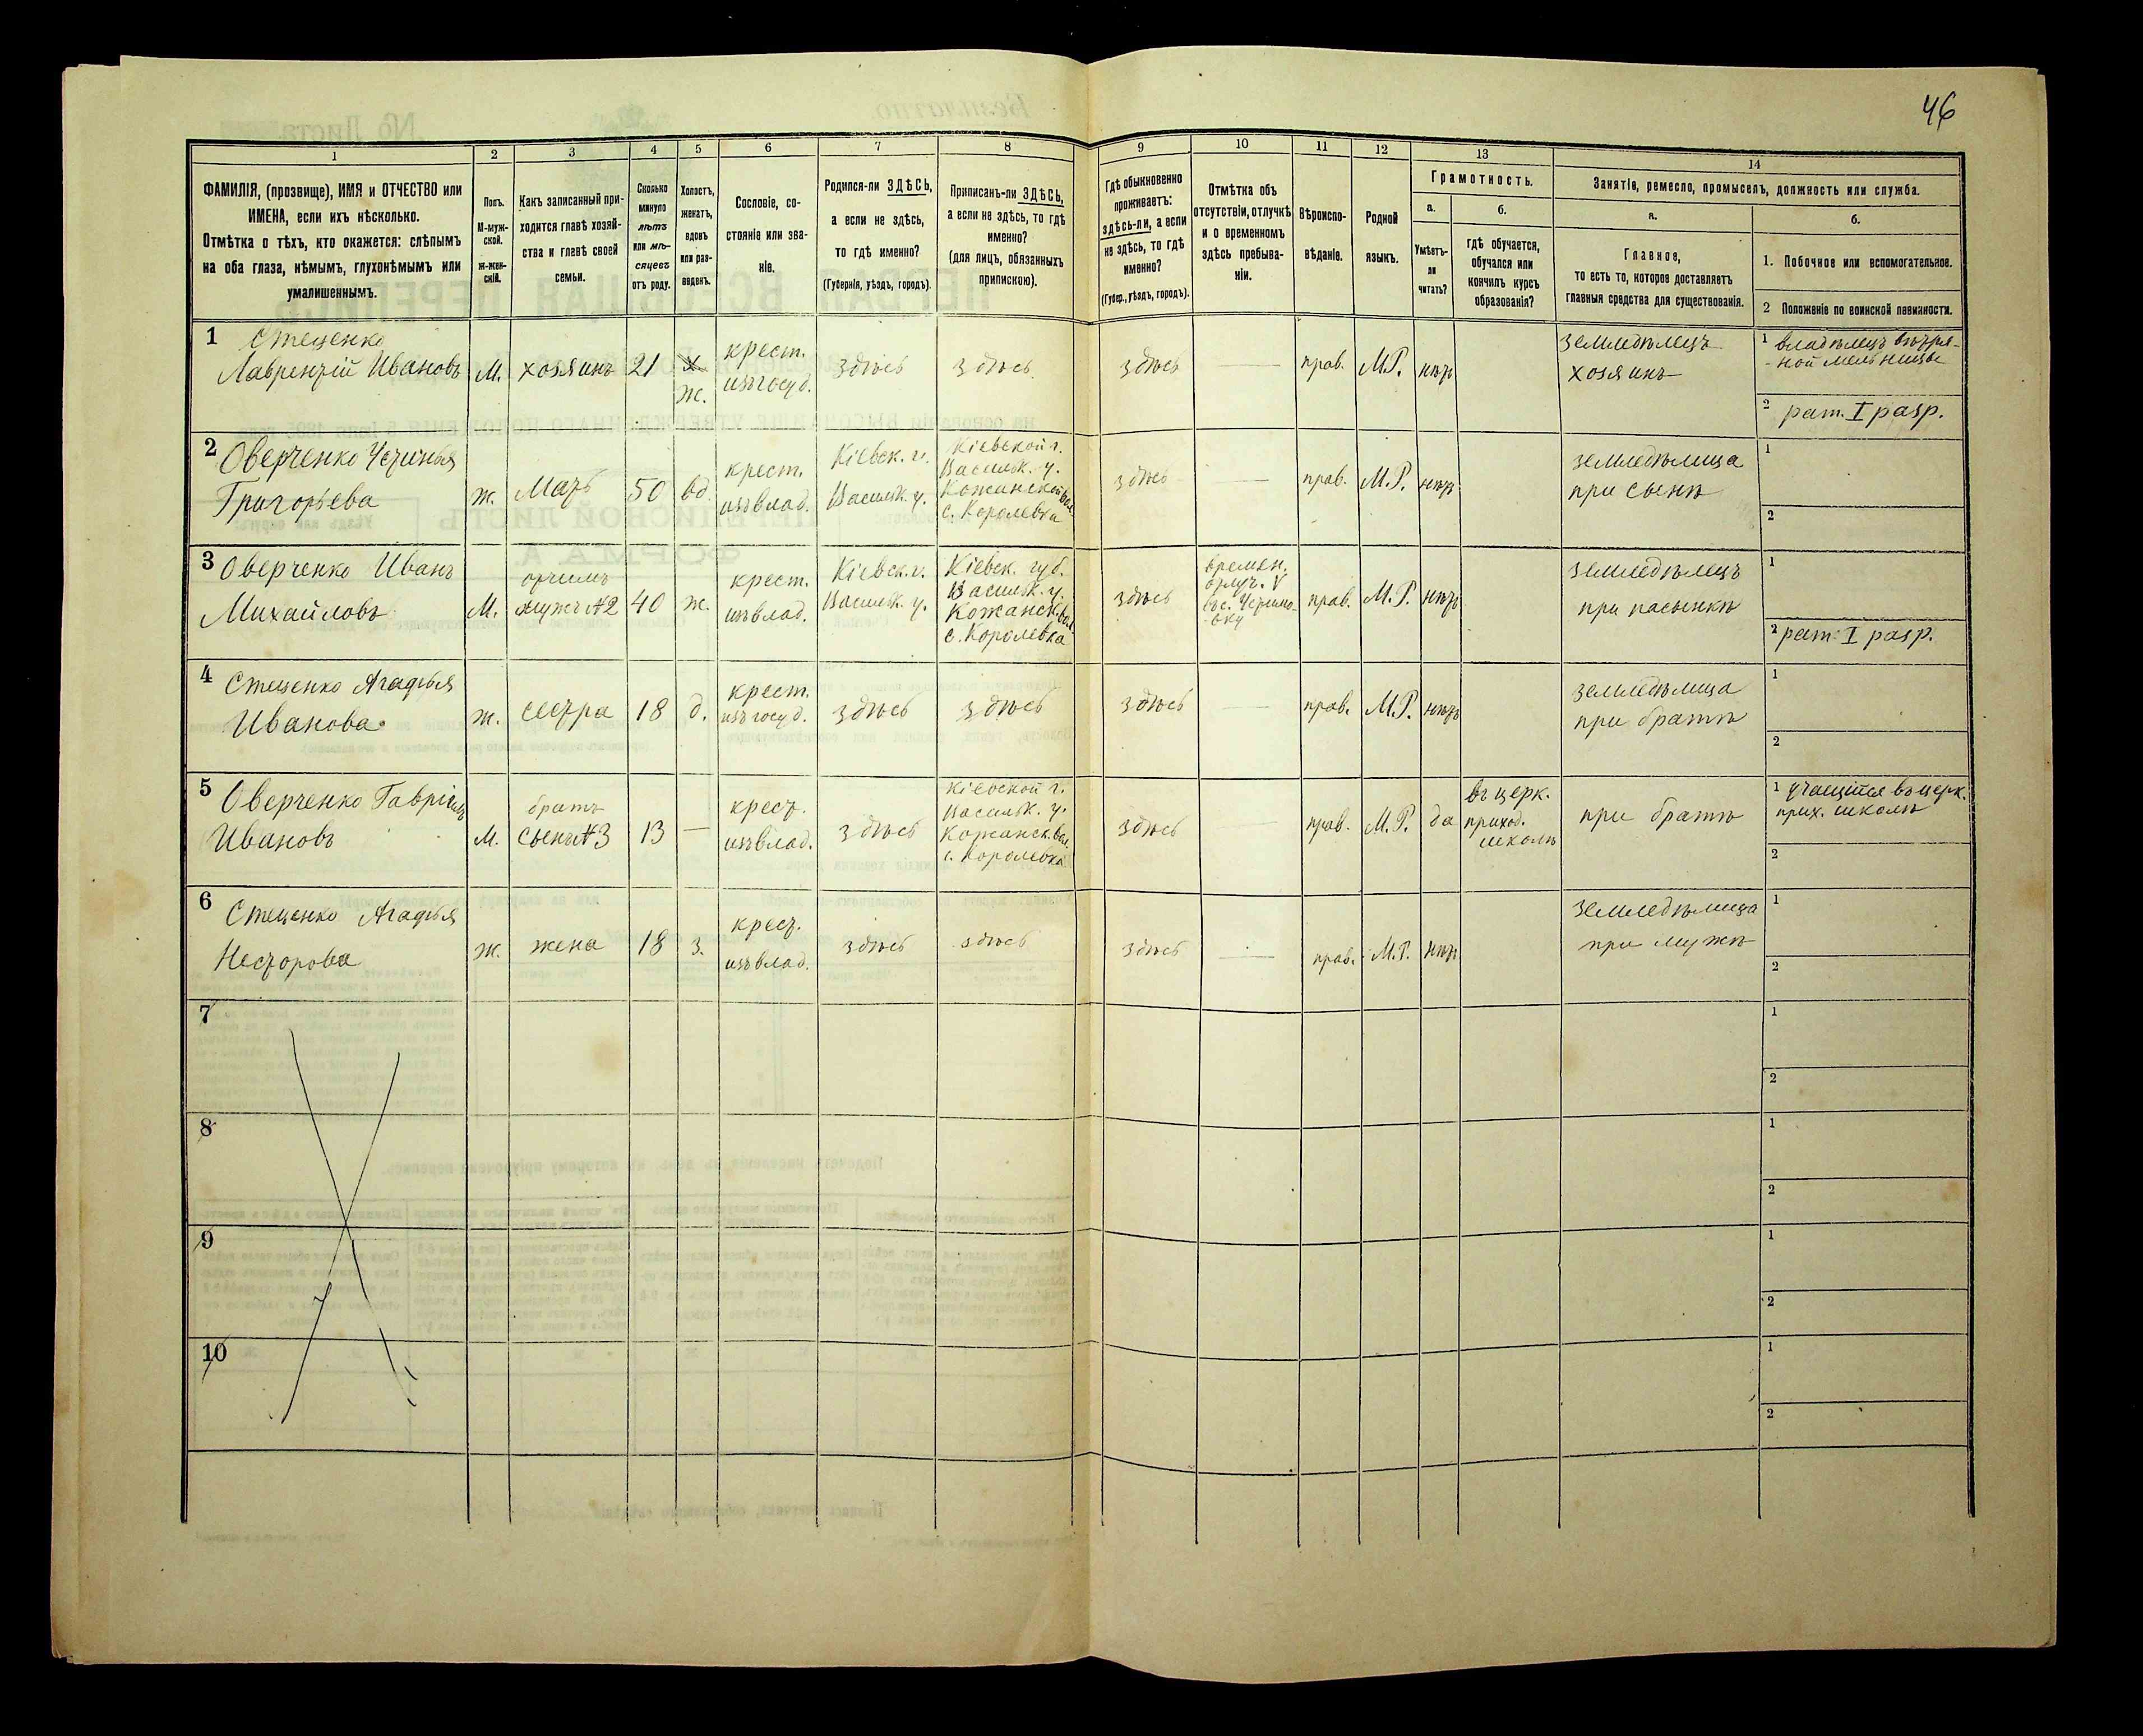 46
1
2
3
4
5
6
7
8
9
10
11
12
13
14
ФАМИЛІЯ, (прозвище), ИМЯ и ОТЧЕСТВО или
ИМЕНА, если ихъ нѣсколько.
Отмѣтка о тѣхъ, кто окажется: слѣпымъ
на оба глаза, нѣмымъ, глухонѣмымъ или
умалишеннымъ.
Полъ.
М-муж-
ской.
ж-жен-
скій.
Какъ записанный при-
ходится главѣ хозяй-
ства и главѣ своей
семьи.
Сколько
минуло
лѣтъ
или мѣ-
сяцевъ
отъ роду.
Холостъ,
женатъ,
вдовъ
или раз-
веденъ.
Сословіе, со-
стояніе или зва-
ніе.
Родился-ли ЗДѢСЬ,
а если не здѣсь,
то гдѣ именно?
(Губернія, уѣздъ, городъ).
Приписанъ-ли ЗДѢСЬ,
а если не здѣсь, то гдѣ
именно?
(для лицъ, обязанныхъ
припискою).
Гдѣ обыкновенно
проживаетъ:
здѣсь-ли, а если
не здѣсь, то гдѣ
именно?
(Губер., уѣздъ, городъ).
Отмѣтка объ
отсутствіи, отлучкѣ
и о временномъ
здѣсь пребыва-
ніи.
Вѣроиспо-
вѣданіе.
Родной
языкъ.
Грамотность.
а.
Умѣетъ-
ли
читать?
б.
гдѣ обучается,
обучался или
кончилъ курсъ
образованія?
Занятіе, ремесло, промыселъ, должность или служба.
а.
Главное,
то есть то, которое доставляетъ
главныя средства для существованія.
б.
1. Побочное или вспомогательное.
2 Положеніе по воинской повинности.
1 Стеценко
Лаврентій Ивановъ
М.
хозяинъ
21
х
ж.
крест.
изъ госуд.
здѣсь
здѣсь
здѣсь
прав.
М.Р.
нѣтъ
земледѣлецъ
хозяинъ
1 владѣлецъ вѣтря-
-ной мельницы
2 рат. I разр.
2 Оверченко Устинья
Григорьева
ж.
Мать
50
вд.
крест.
изъ влад.
Кіевск. г.
Васильк. у.
Кіевской г.
Васильк. у.
Кожанской вол.
с. Королевка
здѣсь
прав.
М.Р.
нѣтъ
земледѣлица
при сынѣ
1
2
3 Оверченко Иванъ
Михайловъ
М.
отчимъ
мужъ №2
40
ж.
крест.
изъ влад.
Кіевск. г.
Васильк. у.
Кіевск. губ.
Васильк. у.
Кожанск. вол.
с. Королевка
здѣсь
времен.
отлуч. V
въ с.
прав.
М.Р.
нѣтъ
земледѣлецъ
при пасынкѣ
1
2 рат. I разр.
4 Стеценко Агафья
Иванова
ж.
сестра
18
д.
крест.
изъ госуд.
здѣсь
здѣсь
здѣсь
прав.
М.Р.
нѣтъ
земледѣлица
при братѣ
1
2
5 Оверченко Гавріилъ
Ивановъ
М.
братъ
сынъ №3
13
—
крест.
изъ влад.
здѣсь
Кіевской г.
Васильк. у.
Кожанск. вол.
с. Королевка
здѣсь
прав.
М.Р.
да
въ церк.
приход.
школѣ
при братѣ
1 учащійся въ церк.
прих. школѣ
2
6 Стеценко Агафья
Несторова
ж.
жена
18
з.
крест.
изъ влад.
здѣсь
здѣсь
здѣсь
прав.
М.Р.
нѣтъ
земледѣлица
при мужѣ
1
2
7
1
2
8
1
2
9
1
2
10
1
2